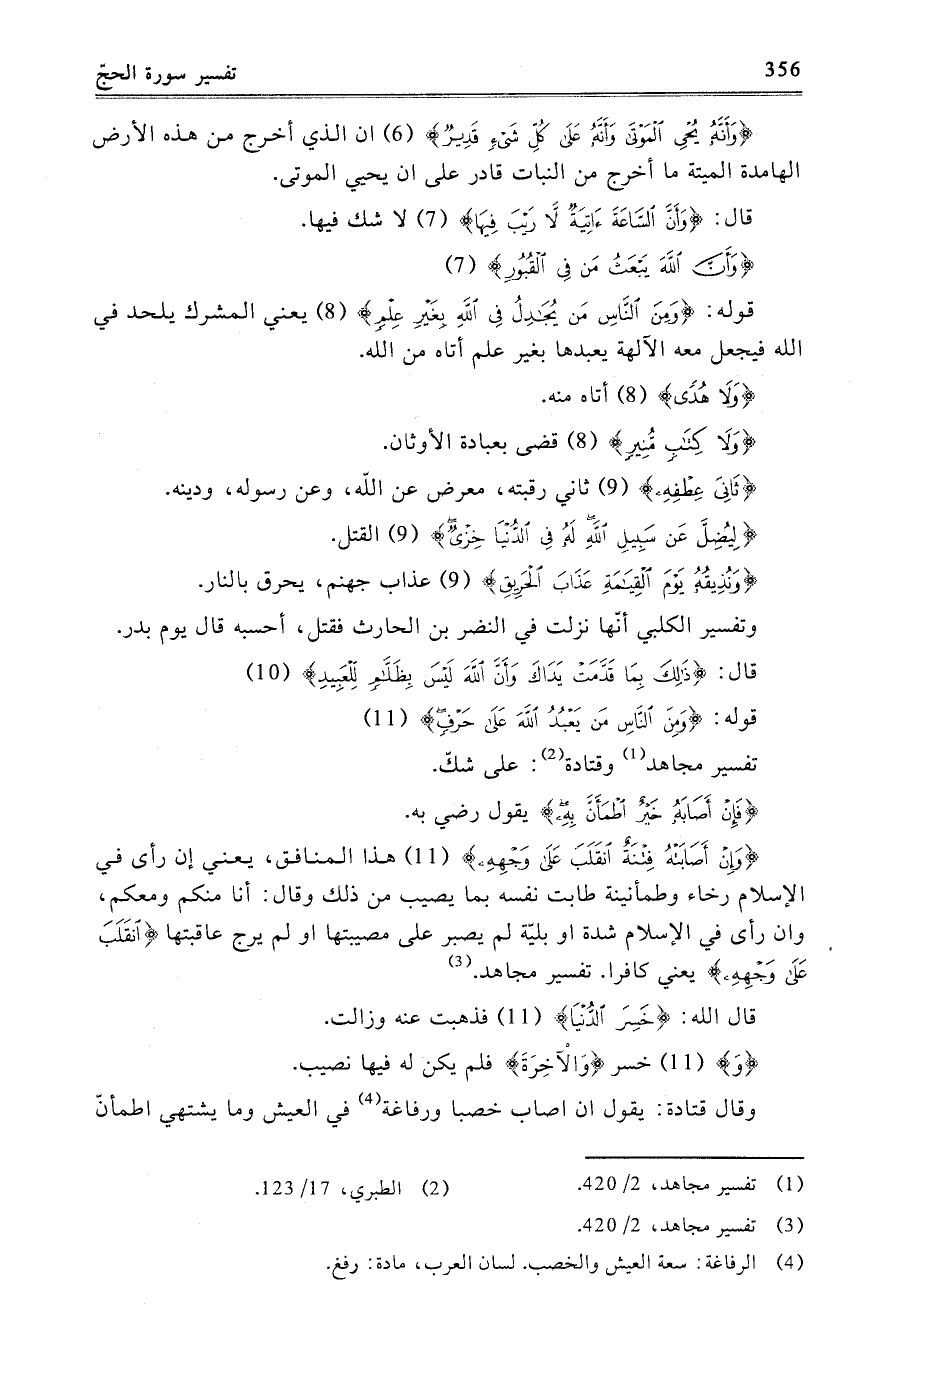 356
تفسير سورة الحجّ
﴿وَأَنَّهُ يُحْيِ الْمَوْتَى وَأَنَّهُ عَلَى كُلِّ شَيْءٍ قَدِيرٌ﴾ (6) ان الذي أخرج من هذه الأرض
الهامدة الميتة ما أخرج من النبات قادر على ان يحيي الموتى.
قال: ﴿وَأَنَّ ٱلسَّاعَةَ ءَاتِيَةٌ لَّا رَيْبَ فِيهَا﴾ (7) لا شك فيها.
﴿وَأَنَّ ٱللَّهَ يَبْعَثُ مَن فِي ٱلْقُبُورِ﴾ (7)
قوله: ﴿وَمِنَ ٱلنَّاسِ مَن يُجَٰدِلُ فِي ٱللَّهِ بِغَيْرِ عِلْمٍ﴾ (8) يعني المشرك يلحد في
الله فيجعل معه الآلهة يعبدها بغير علم أتاه من الله.
﴿وَلَا هُدًى﴾ (8) أتاه منه.
﴿وَلَا كِتَٰبٍ مُّنِيرٍ﴾ (8) قضى بعبادة الأوثان.
﴿ثَانِيَ عِطْفِهِۦ﴾ (9) ثاني رقبته، معرض عن اللّه، وعن رسوله، ودينه.
﴿لِيُضِلَّ عَن سَبِيلِ ٱللَّهِۖ لَهُۥ فِي ٱلدُّنْيَا خِزْيٌۖ﴾ (9) القتل.
﴿وَنُذِيقُهُۥ يَوْمَ ٱلْقِيَٰمَةِ عَذَابَ ٱلْحَرِيقِ﴾ (9) عذاب جهنم، يحرق بالنار.
وتفسير الكلبي أنّها نزلت في النضر بن الحارث فقتل، أحسبه قال يوم بدر.
قال: ﴿ذَٰلِكَ بِمَا قَدَّمَتْ يَدَاكَ وَأَنَّ ٱللَّهَ لَيْسَ بِظَلَّٰمٍ لِّلْعَبِيدِ﴾ (10)
قوله: ﴿وَمِنَ ٱلنَّاسِ مَن يَعْبُدُ ٱللَّهَ عَلَىٰ حَرْفٍۖ﴾ (11)
تفسير مجاهد(1) وقتادة(2): على شكّ.
﴿فَإِنْ أَصَابَهُۥ خَيْرٌ ٱطْمَأَنَّ بِهِۦۖ﴾ يقول رضي به.
﴿وَإِنْ أَصَابَتْهُ فِتْنَةٌ ٱنقَلَبَ عَلَىٰ وَجْهِهِۦ﴾ (11) هذا المنافق، يعني إن رأى في
الإسلام رخاء وطمأنينة طابت نفسه بما يصيب من ذلك وقال: أنا منكم ومعكم،
وان رأى في الإسلام شدة او بليّة لم يصبر على مصيبتها او لم يرج عاقبتها ﴿ٱنقَلَبَ
عَلَىٰ وَجْهِهِۦ﴾ يعني كافرا. تفسير مجاهد.(3)
قال الله: ﴿خَسِرَ ٱلدُّنْيَا﴾ (11) فذهبت عنه وزالت.
﴿وَ﴾ (11) خسر ﴿وَالْآخِرَةَ﴾ فلم يكن له فيها نصيب.
وقال قتادة: يقول ان اصاب خصبا ورفاغة(4) في العيش وما يشتهي اطمأنّ
(1) تفسير مجاهد، 2/ 420.
(2) الطبري، 17/ 123.
(3) تفسير مجاهد، 2/ 420.
(4) الرفاغة: سعة العيش والخصب. لسان العرب، مادة: رفغ.